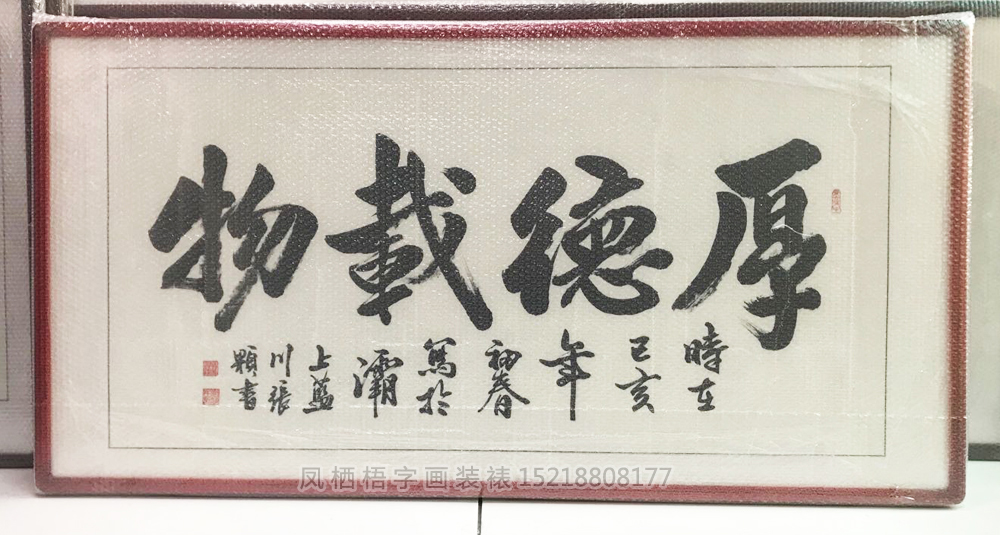 厚德載物
時在
己亥
年
初春
寫於
灞
上藍
川張
顆書
凤栖梧字画装裱15218808177